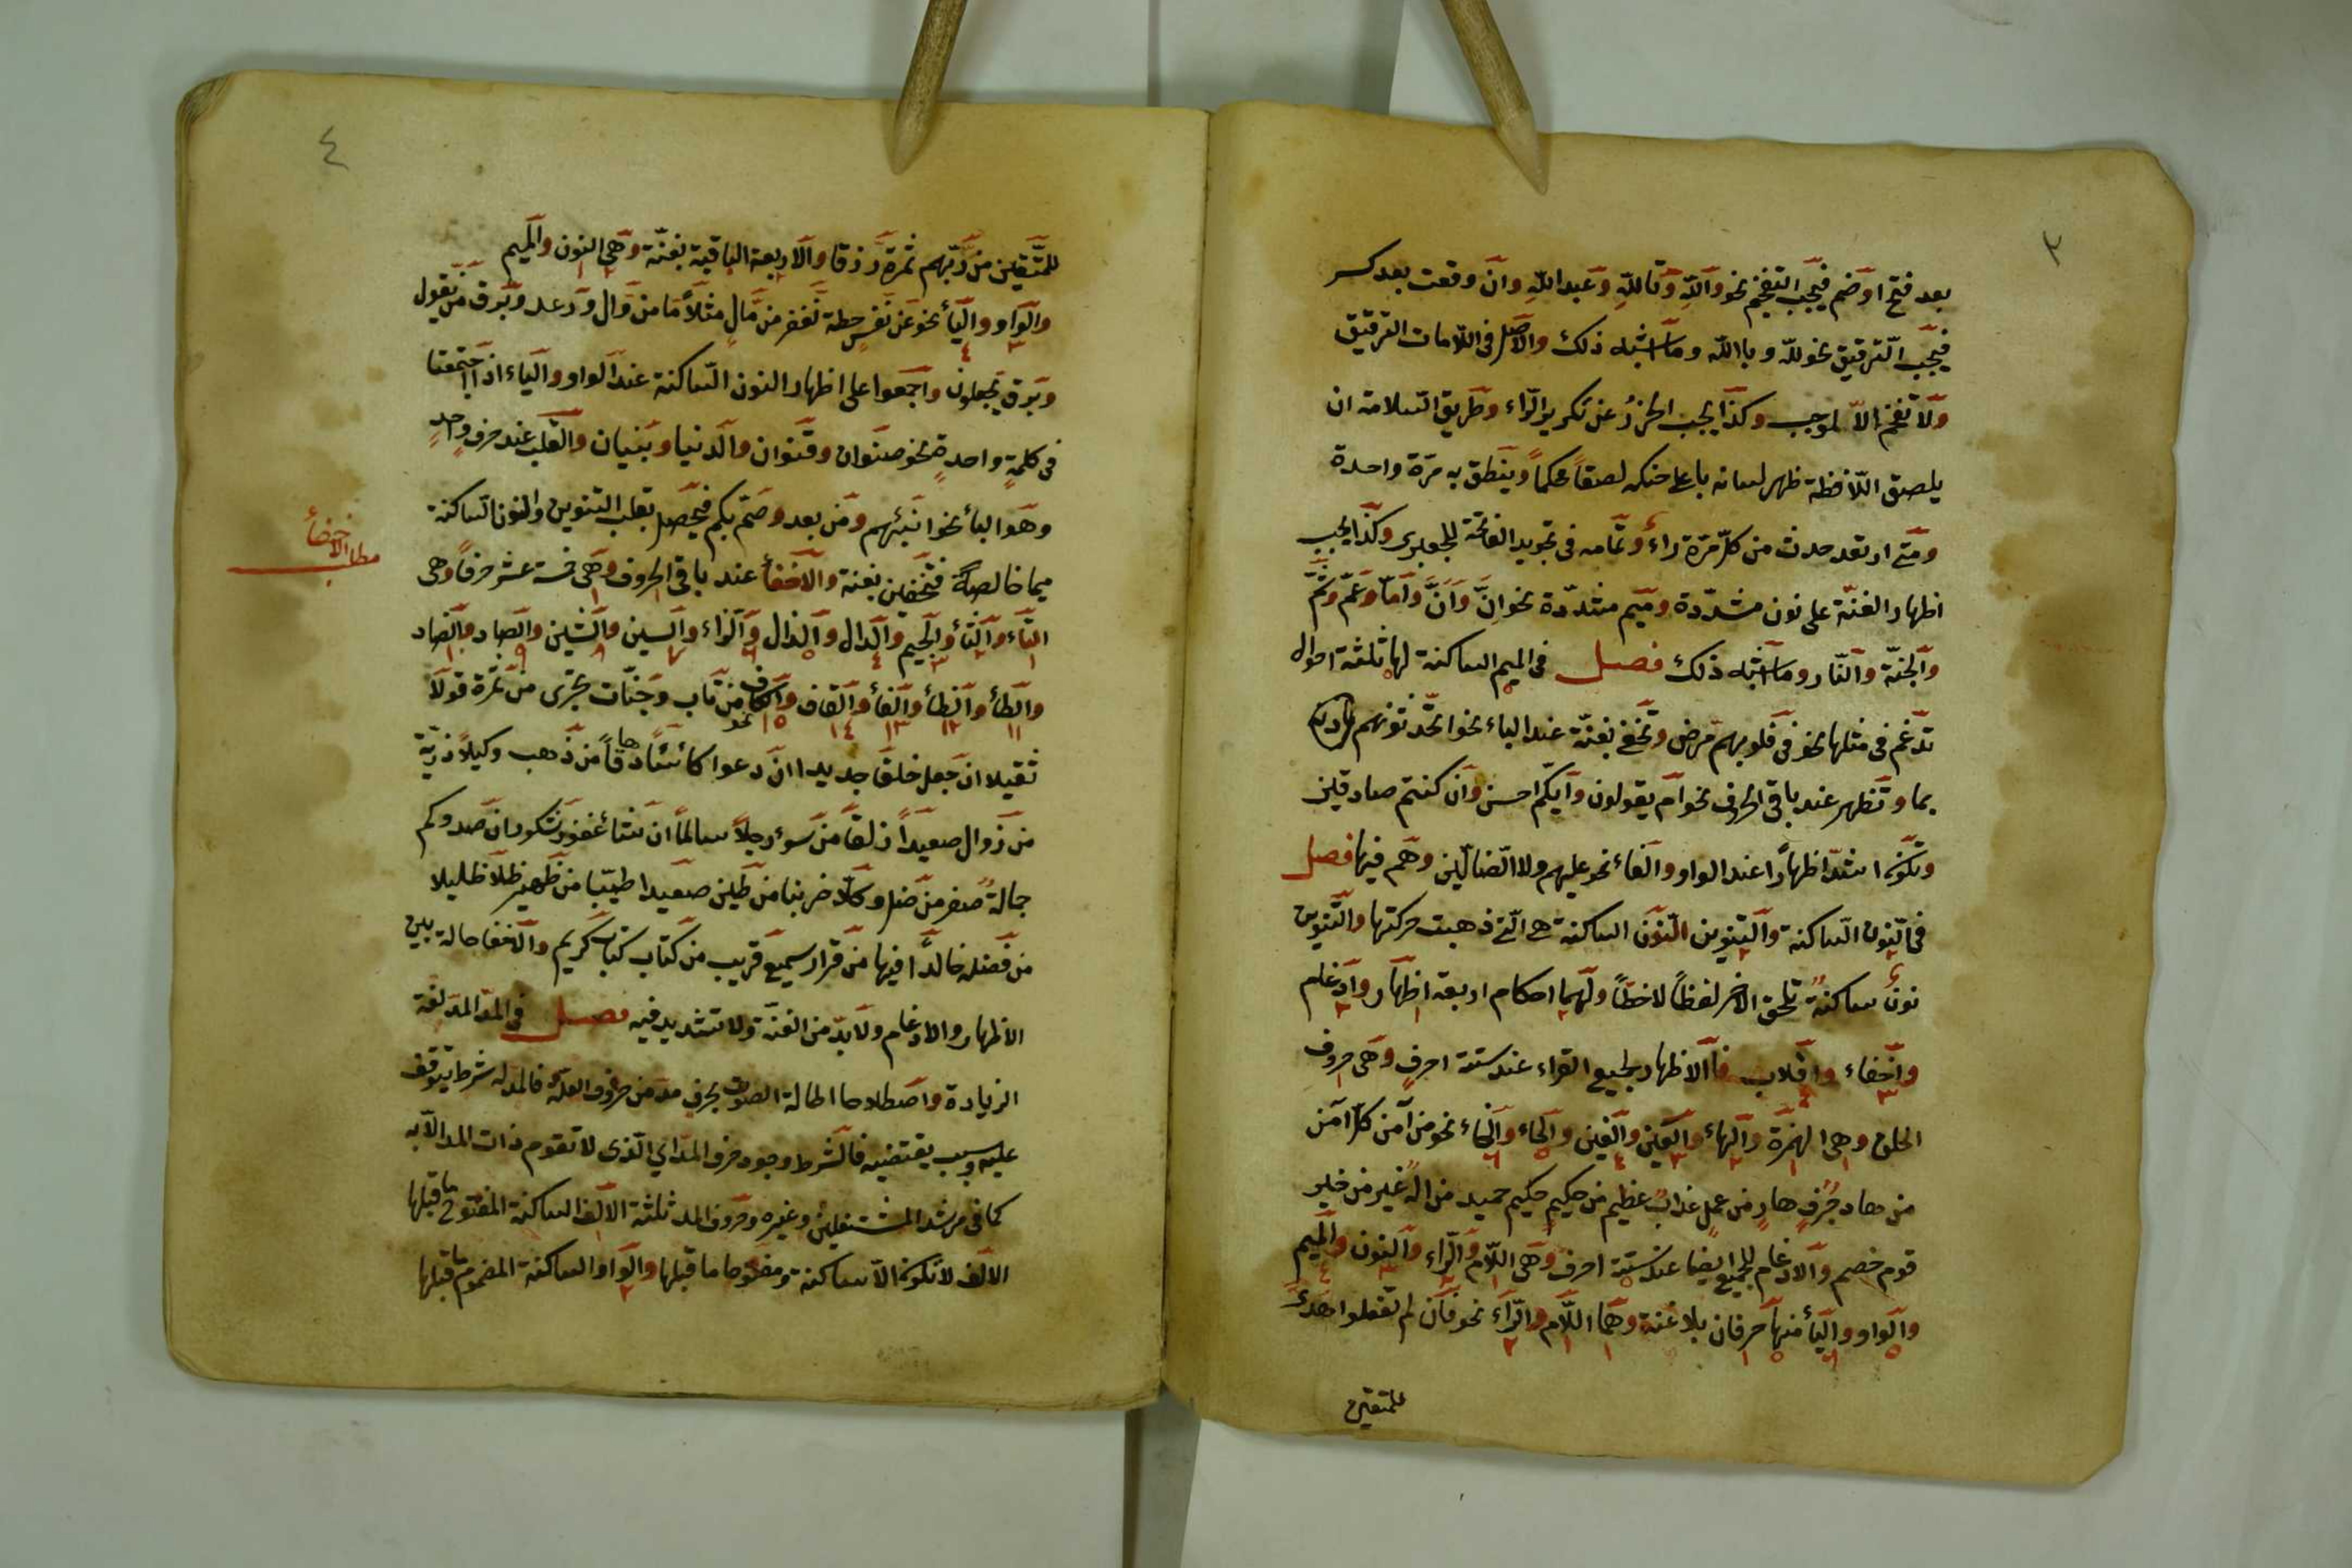 ٣
بعد فتح او ضم فيجب التفخيم نحو والله وتالله وعبد الله وان وقعت بعد كسر
فيجب الترقيق نحو لله وبالله وما اشبه ذلك والاصل فى اللامات الترقيق
ولا تفخم الا لموجب وكذا يجب الحزر عن تكرير الراء وطريق السلامة ان
يلصق اللافظة ظهر لسانه باعلى حنكه لصقا محكما وينطق به مرة واحدة
ومتى ارتعد حدث من كل مرة راء وتمامه فى تجويد الفاتحة للجعبرى وكذا يجب
اظهار الغنة على نون مشددة وميم مشددة نحو ان وان واما وعم وثم
والجنة والنار وما اشبه ذلك فصل فى الميم الساكنة لها ثلثة احوال
تدغم فى مثلها نحو فى قلوبهم مرض وتخفى بغنة عند الباء نحو اتحدثونهم
بما وتظهر عند باقى الحروف نحو ام يقولون وايكم احسن وان كنتم صادقين
وتكون اشد اظهارا عند الواو والفاء نحو عليهم ولا الضالين وهم فيها فصل
فى النون الساكنة والتنوين النون الساكنة هى التى ذهبت حركتها والتنوين
نون ساكنة تلحق الاخر لفظا لا خطا ولهما احكام اربعة اظهار وادغام
واخفاء واقلاب فالاظهار لجميع القراء عند ستة احرف وهى حروف
الحلق وهى الهمزة والهاء والعين والغين والحاء والخاء نحو من آمن كل آمن
من هاد جرف هار من عمل عذاب عظيم من حكيم حكيم حميد من اله غير من خير
قوم خصم والادغام للجميع ايضا عند ستة احرف وهى اللام والراء والنون والميم
والواو والياء منها حرفان بلا غنة وهما اللام والراء نحو فان لم تفعلوا هدى
للمتقين
٤
للمتقين من ربهم ثمرة رزقا والاربعة الباقية بغنة وهى النون والميم
والواو والياء نحو عن نفس حطة نغفر من مال مثلا ما من وال ورعد وبرق من يقول
وبرق يجعلون واجمعوا على اظهار النون الساكنة عند الواو والياء اذا اجتمعتا
فى كلمة واحدة نحو صنوان وقنوان والدنيا وبنيان والقلب عند حرف واحد
وهو الباء نحو انبئهم ومن بعد وصم بكم فيحصل بقلب التنوين والنون الساكنة
ميما خالصة فتخفين بغنة والاخفاء عند باقى الحروف وهى خمسة عشر حرفا وهى
مطلب الاخفاء
التاء والثاء والجيم والدال والذال والزاء والسين والشين والصاد والضاد
والطاء والظاء والفاء والقاف والكاف نحو من تاب وجنات تجرى من ثمرة قولا
ثقيلا ان جعل خلق جديد اان دعوا كاسا دهاقا من ذهب وكيلا ذرية
من زوال صعيدا زلقا من سوء رجلا سالما ان نشاء غفور شكور ان صدوكم
جمالة صفر من ضل وكلا ضربنا من طين صعيدا طيبا من ظهير ظلا ظليلا
من فضله خالدا فيها من قرار سميع قريب من كتاب كتاب كريم والاخفا حالة بين
الاظهار والادغام ولا بد من الغنة ولا تشديد فيه فصل فى المد المد لغة
الزيادة واصطلاحا اطالة الصوت بحرف مد من حروف العلة فالمد له شرط يتوقف
عليه وسبب يقتضيه فالشرط وجود حرف المد اي الذى لا تقوم ذات المد الا به
كما فى مرشد المشتغلين وغيره وحروف المد ثلثة الالف الساكنة المفتوح ما قبلها
الالف لا تكون الا ساكنة ومفتوحا ما قبلها والواو الساكنة المضموم ما قبلها